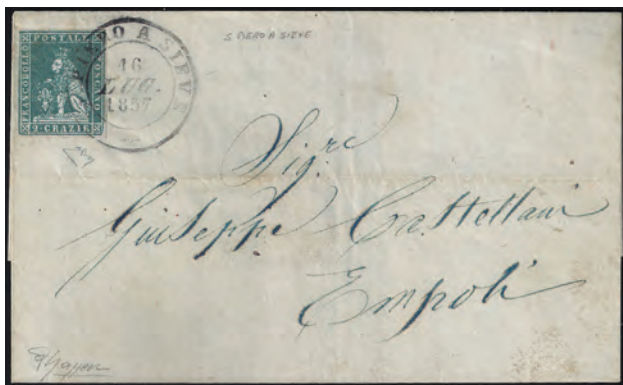 POSTALE
FRANCOBOLLO
TOSCANO
2 CRAZIE
PIERO A SIEVE
16
LUG.
1857
S. PIERO A SIEVE
Sig.re
Giuseppe Castellani
Empoli